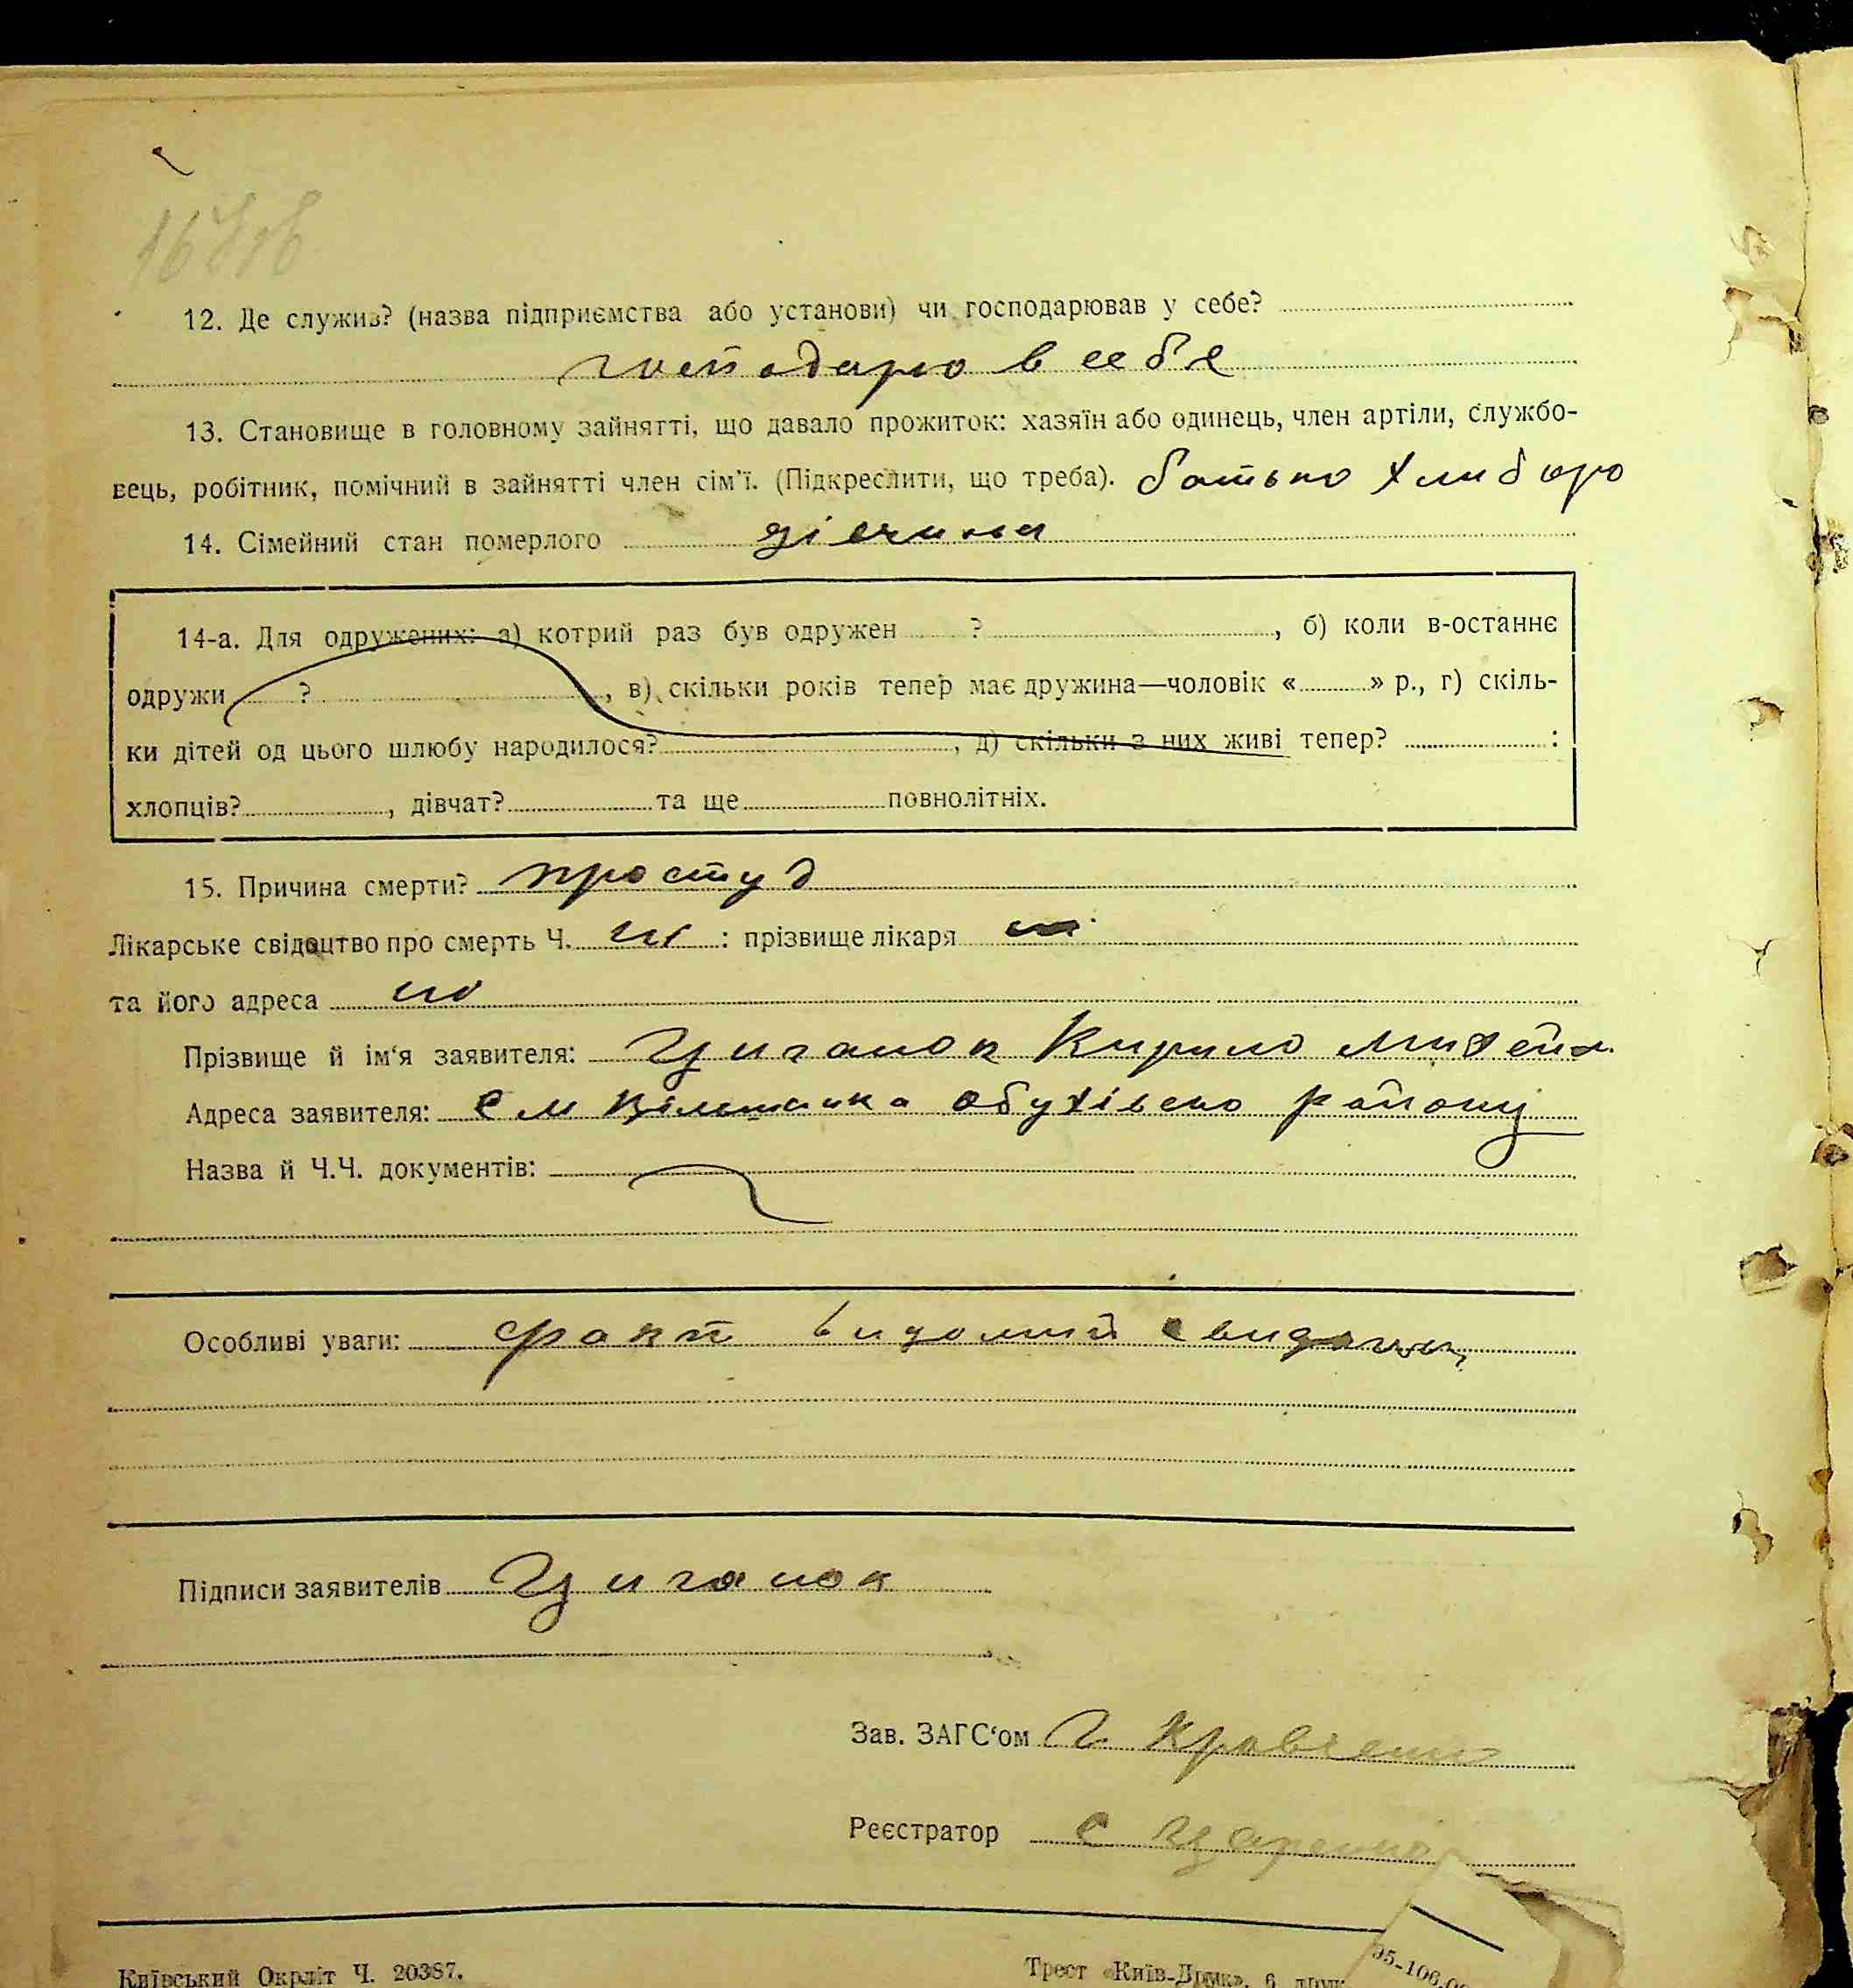 168зв
12. Де служив? (назва підприємства або установи) чи господарював у себе?
господарю в себе
13. Становище в головному зайнятті, що давало прожиток: хазяїн або одинець, член артіли, службо-
вець, робітник, помічний в зайнятті член сім'ї. (Підкреслити, що треба). батько хлибороб
14. Сімейний стан померлого дівчина
14-а. Для одружених: а) котрий раз був одружен ?, б) коли в-останнє
одружи ?, в) скільки років тепер має дружина—чоловік «» р., г) скіль-
ки дітей од цього шлюбу народилося?, д) скільки з них живі тепер? :
хлопців?, дівчат? та ще повнолітніх.
15. Причина смерти? простуд
Лікарське свідоцтво про смерть Ч. : прізвище лікаря
та його адреса
Прізвище й ім'я заявителя: Циганок Кирило
Адреса заявителя: с м Вільшанка Обухівсько району
Назва й Ч.Ч. документів:
Особливі уваги: факт видомий
Підписи заявителів Циганок
Зав. ЗАГС'ом Г. Кравченко
Реєстратор С Царенко
Київський Окрліт Ч. 20387.
Трест «Київ-Друк», 6 друк